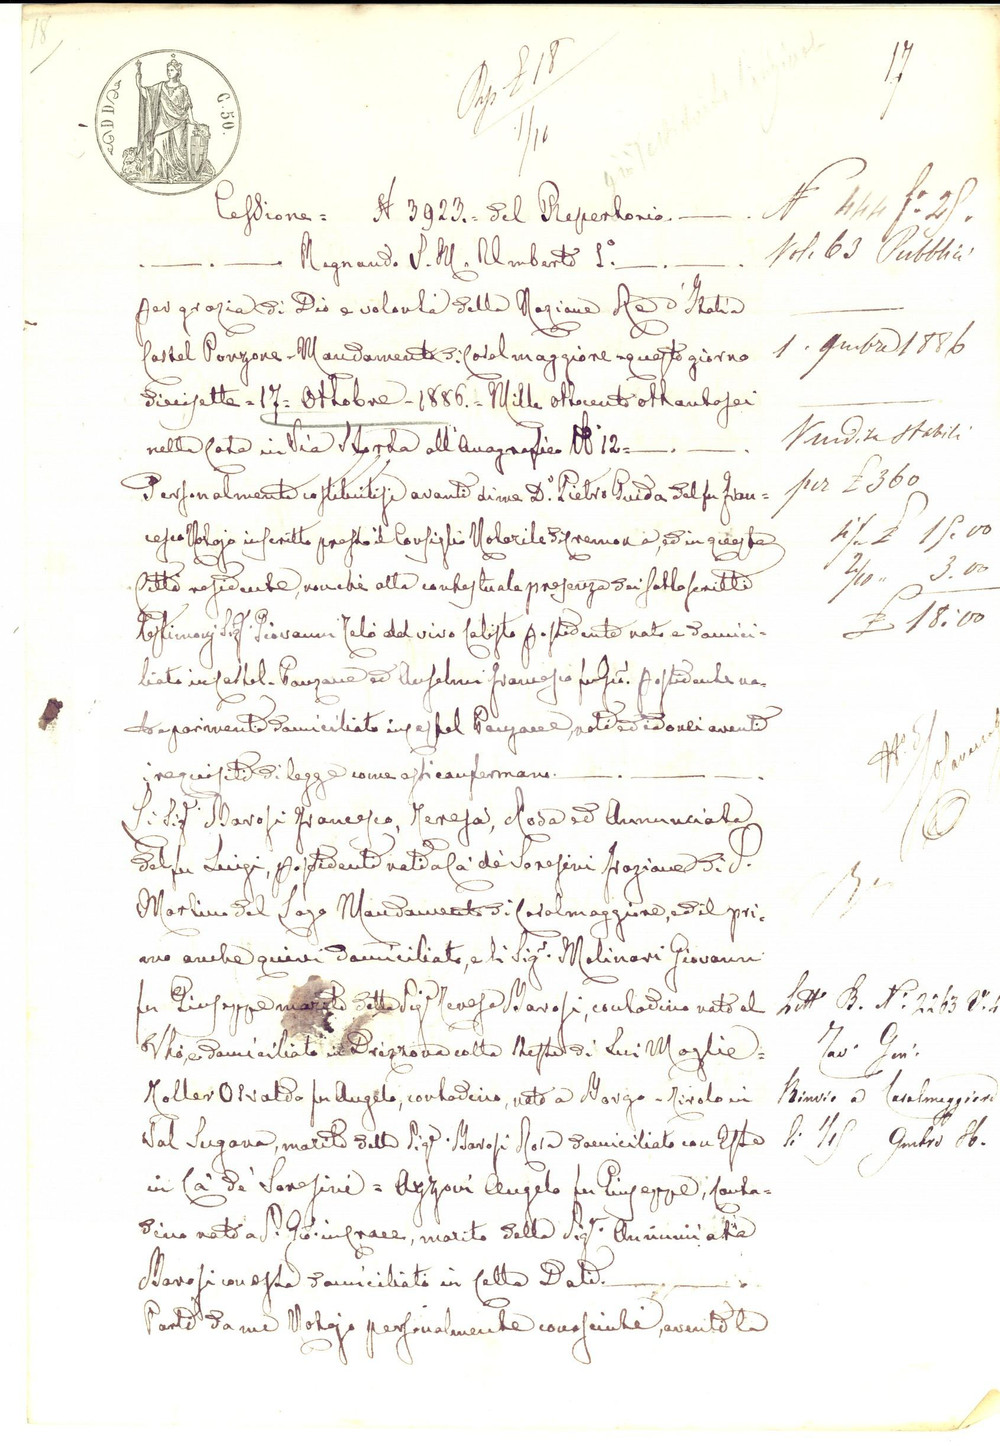 18
17
Rep £ 18
1/10
C. 50.
Cessione = N 3923 = del Repertorio.
Regnando S. M. Umberto I.°
per grazia di Dio e volontà della Nazione Re d'Italia
Castel Ponzone - Mandamento di Casalmaggiore - questo giorno
diecisette - 17 - Ottobre - 1886. - Mille ottocento ottantasei
nella Casa in Via Storta all'Anagrafico N° 12 =
Personalmente costituitisi avanti di me D.r Pietro Guida del fu Fran-
cesco Notajo inscritto presso il Consiglio Notarile di Cremona, ed in questa
Città residente, nonchè alla contestuale presenza dei sottoscritti
testimonj Sig.i Giovanni Telò del vivo Calisto possidente nato e domici-
liato in Castel-Ponzone ed Anselmi Francesco fu Giu. possidente na-
to e parimenti domiciliato in Castel Ponzone, noti ed idonei aventi
i requisiti di legge come essi confermano.
Li Sig.i Barosi Francesco, Teresa, Rosa ed Annunciata
del fu Luigi, possidenti nati a Cà de' Soresini frazione di S.
Martino del Lago Mandamento di Casalmaggiore, ed il pri-
mo anche quivi domiciliato, e li Sig.i Molinari Giovanni
fu Giuseppe marito della Sig.a Teresa Barosi, contadino nato al
Vhò, e domiciliato in Drizzona colla stessa di Lui Moglie =
Moller Osvaldo fu Angelo, contadino, nato a Borgo - in
Val Sugana, marito della Sig.a Barosi Rosa domiciliato con Essa
in Cà de' Soresini = Azzoni Angelo fu Giuseppe, Conta-
dino nato a S. Gio. in Croce, marito della Sig.a Annunciata
Barosi con essa domiciliato in Cella Dati.
Parti da me Notajo personalmente conosciute, aventi la
N 444 f.° 25.
Vol. 63 Pubblici
1. 9mbre 1886
Vendita stabili
per £ 360
£ 15.00
2/10 " 3.00
£ 18.00
Lett. B. N.° 2263
Tav. Gen.
Rinvio a Casalmaggiore
li 9mbre 86.